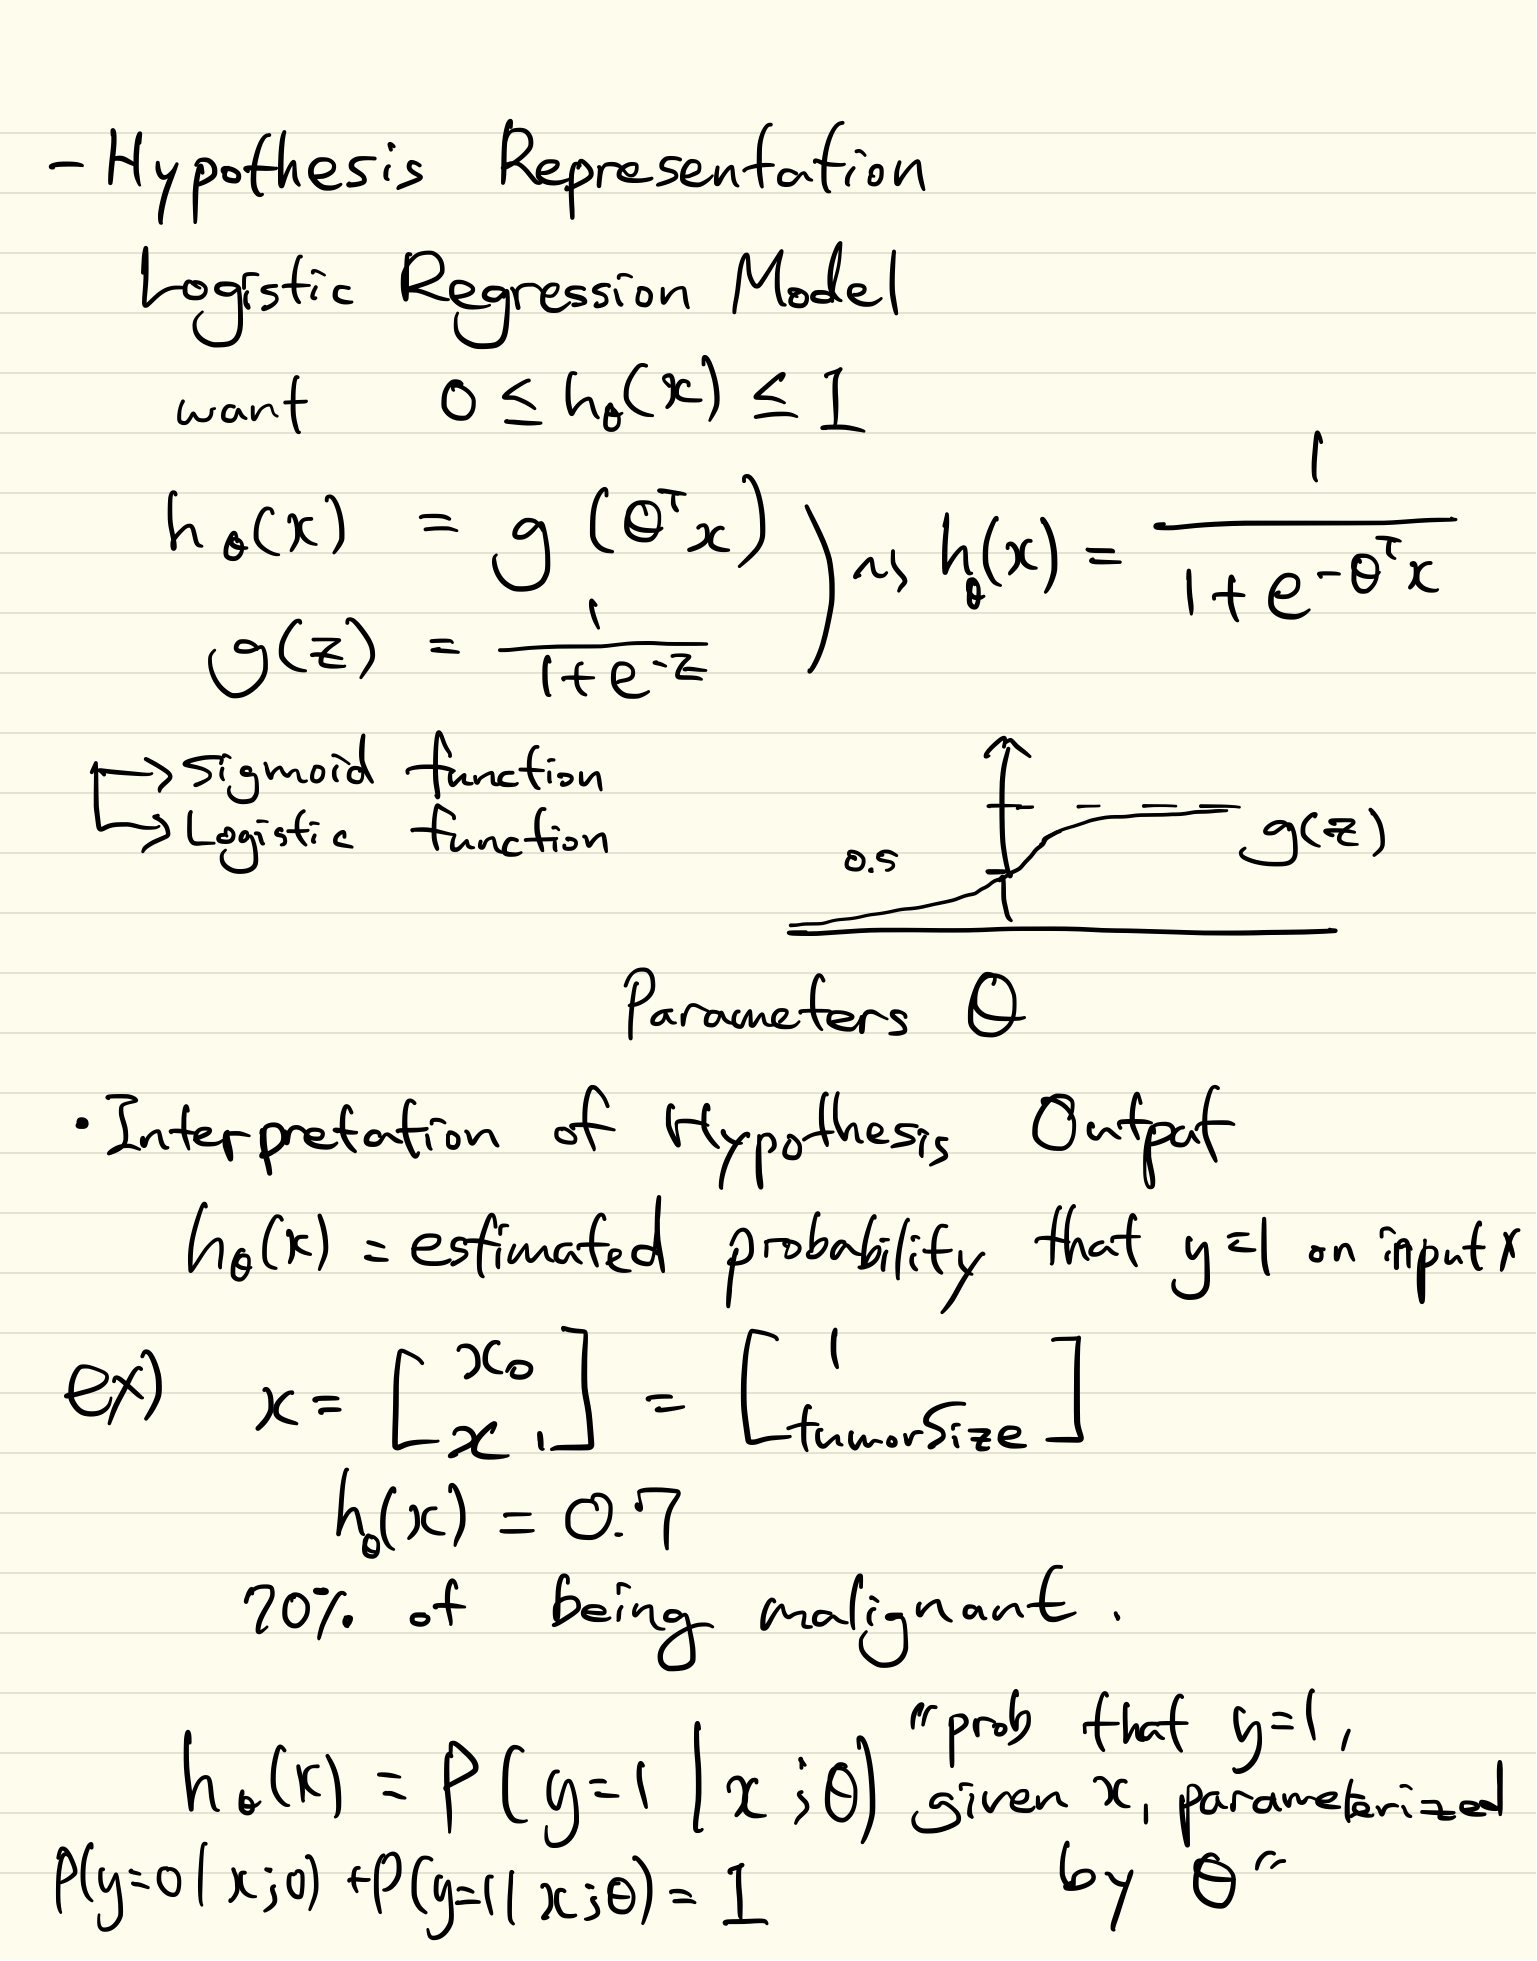 - Hypothesis Representation
Logistic Regression Model
want 0 ≤ hθ(x) ≤ 1
hθ(x) = g(θᵀx)
g(z) = 1 / (1+e^-z)
hθ(x) = 1 / (1+e^-θᵀx)
→ Sigmoid function
→ Logistic function
0.5
g(z)
Parameters θ
• Interpretation of Hypothesis Output
hθ(x) = estimated probability that y=1 on input x
ex) x = [x₀ x₁] = [1 tumorSize]
hθ(x) = 0.7
70% of being malignant.
hθ(x) = P(y=1 | x ; θ)
"prob that y=1,
given x, parameterized
by θ"
P(y=0 | x;θ) + P(y=1 | x;θ) = 1